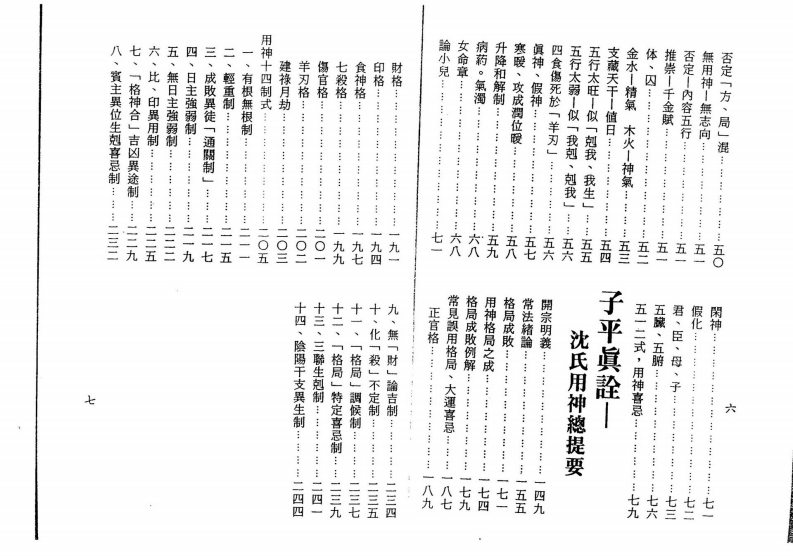 否定「方、局」混………五〇
無用神—無志向………五一
否定—內容五行………五一
推崇—千金賦………五一
体、囚………五二
金水—精氣　木火—神氣………五三
支藏天干—値日………五四
五行太旺—似「剋我、我生」………五五
五行太弱—似「我剋、剋我」………五六
四食傷死於「羊刃」………五六
眞神、假神………五七
寒暖、攻成潤位暖………五八
升降和解制………五九
病葯。氣濁………六八
女命章………六八
論小兒………七一
閑神………七一
假化………七二
君、臣、母、子………七三
五臟、五腑………七六
五一二式，用神喜忌………七九
子平眞詮—
沈氏用神總提要
開宗明義………一四九
常法緒論………一五五
格局成敗………一七一
用神格局之成………一七四
格局成敗例解………一七九
常見誤用格局、大運喜忌………一八七
正官格………一八九
六
財格………一九一
印格………一九四
食神格………一九七
七殺格………一九九
傷官格………二〇一
羊刃格………二〇二
建祿月劫………二〇三
用神十四制式………二〇五
一、有根無根制………二一一
二、輕重制………二一五
三、成敗異徒「通關制」………二一七
四、日主強弱制………二一九
五、無日主強弱制………二二二
六、比、印異用制………二二五
七、「格神合」吉凶異途制………二二九
八、賓主異位生剋喜忌制………二三二
九、無「財」論吉制………二三四
十、化「殺」不定制………二三五
十一、「格局」調候制………二三七
十二、「格局」特定喜忌制………二三九
十三、三聯生剋制………二四一
十四、陰陽干支異生制………二四四
七